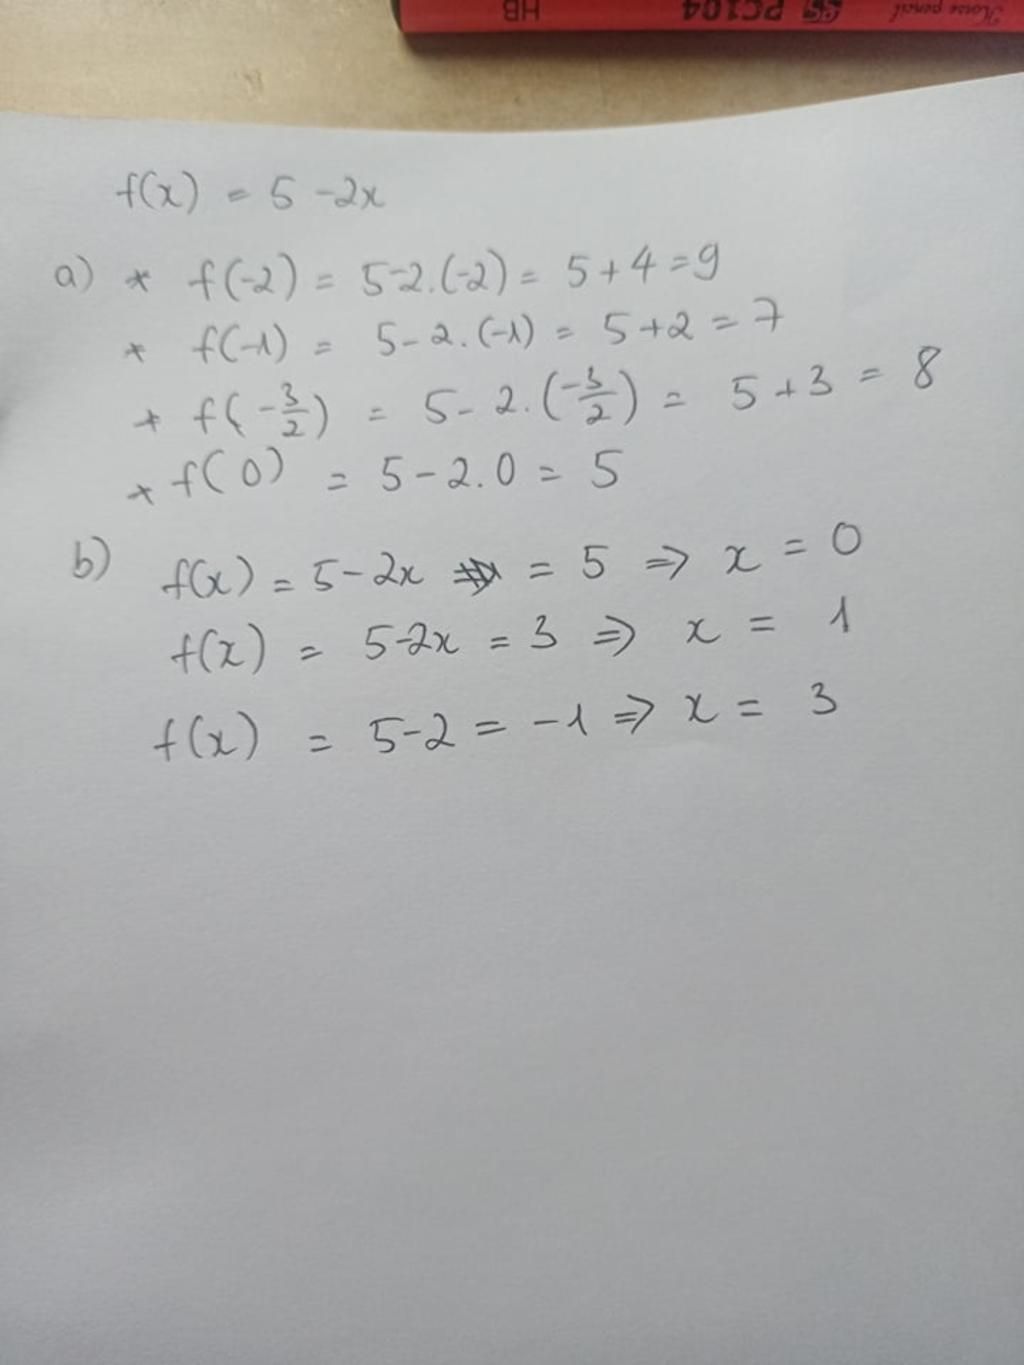 HB PC104 Horse pencil
f(x) = 5 -2x
a) * f(-2) = 5-2.(-2) = 5+4 =9
* f(-1) = 5-2.(-1) = 5+2 = 7
* f(-3/2) = 5-2.(-3/2) = 5+3 = 8
* f(0) = 5-2.0 = 5
b) f(x) = 5-2x = 5 => x = 0
f(x) = 5-2x = 3 => x = 1
f(x) = 5-2 = -1 => x = 3